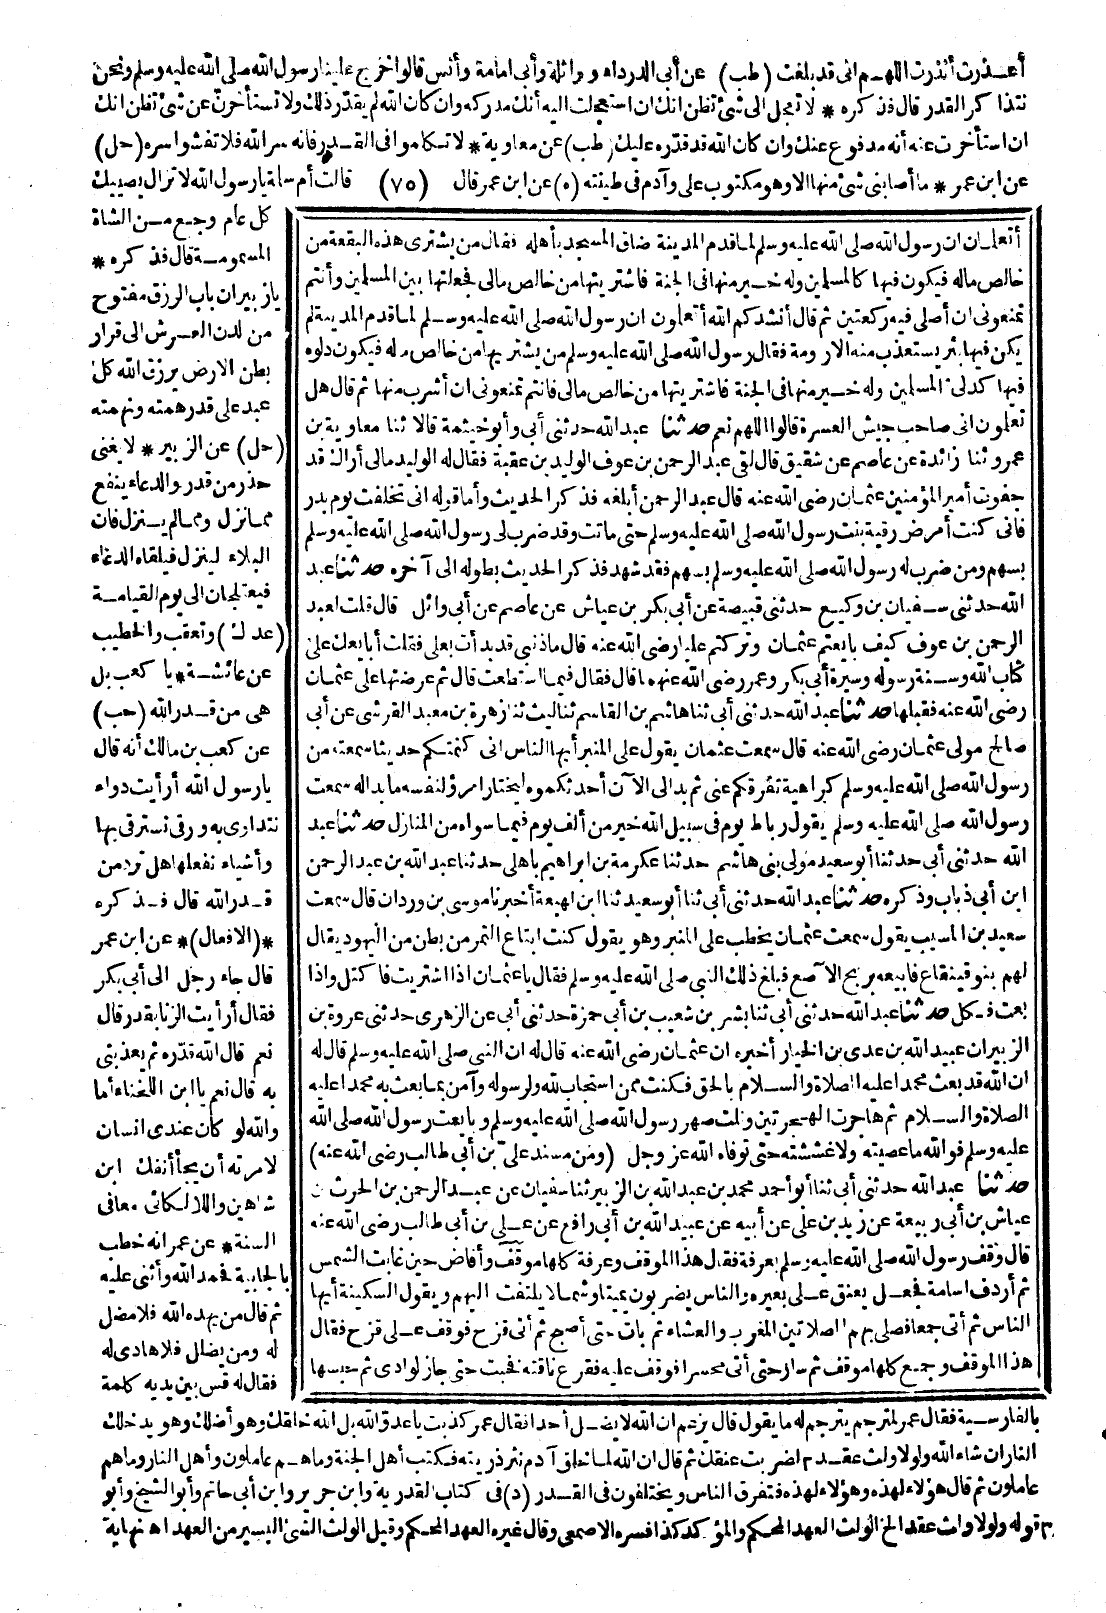 أعذرت أنذرت اللهم انى قد بلغت (طب) عن أبى الدرداء وواثلة وأبى امامة وأنس قالوا خرج علينا رسول الله صلى الله عليه وسلم ونحن
نتذاكر القدر قال فذكره * لا تعجل الى شئ تظن انك ان استعجلت اليه أنك مدركه وان كان الله لم يقدر ذلك ولا تستأخرن عن شئ تظن انك
ان استأخرت عنه أنه مدفوع عنك وان كان الله قد قدره عليك (طب) عن معاوية * لا تكلموا فى القدر فانه سر الله فلا تفشوا سره (حل)
عن ابن عمر * ما أصابنى شئ منها الا وهو مكتوب على وآدم فى طينته (ه) عن ابن عمر قال (٧٥) قالت أم سلمة يا رسول الله لا تزال يصيبك
كل عام وجع من الشاة
المسمومة قال فذكره *
يا زبير ان باب الرزق مفتوح
من لدن العرش الى قرار
بطن الارض يرزق الله كل
عبد على قدر همته ونهمته
(حل) عن الزبير * لا يغنى
حذر من قدر والدعاء ينفع
مما نزل ومما لم ينزل فان
البلاء لينزل فيلقاه الدعاء
فيعتلجان الى يوم القيامة
(عد ك) وتعقب والخطيب
عن عائشة * يا كعب بل
هى من قدر الله (حب)
عن كعب بن مالك أنه قال
يا رسول الله أرأيت دواء
نتداوى به ورقى نسترقى بها
وأشياء نفعلها هل ترد من
قدر الله قال فذكره
*(الافعال)* عن ابن عمر
قال جاء رجل الى أبى بكر
فقال أرأيت الزنا بقدر قال
نعم قال الله قدره ثم يعذبنى
به قال نعم يا ابن اللخناء أما
والله لو كان عندى انسان
لامرته أن يجأ أنفك ابن
شاهين واللالكائى معافى
السنة * عن عمر انه خطب
بالجابية فحمد الله وأثنى عليه
ثم قال من يهده الله فلا مضل
له ومن يضلل فلا هادى له
فقال له قس بين يديه كلمة
أتعلمان ان رسول الله صلى الله عليه وسلم لما قدم المدينة ضاق المسجد بأهله فقال من يشترى هذه البقعة من
خالص ماله فيكون فيها كالمسلمين وله خير منها فى الجنة فاشتريتها من خالص مالى فجعلتها بين المسلمين وأنتم
تمنعونى ان أصلى فيه ركعتين ثم قال أنشدكم الله أتعلمون ان رسول الله صلى الله عليه وسلم لما قدم المدينة لم
يكن فيها بئر يستعذب منه الا رومة فقال رسول الله صلى الله عليه وسلم من يشتريها من خالص ماله فيكون دلوه
فيها كدلى المسلمين وله خير منها فى الجنة فاشتريتها من خالص مالى فانتم تمنعونى ان أشرب منها ثم قال هل
تعلمون انى صاحب جيش العسرة قالوا اللهم نعم حدثنا عبد الله حدثنى أبى وأبو خيثمة قالا ثنا معاوية بن
عمرو ثنا زائدة عن عاصم عن شقيق قال لقى عبد الرحمن بن عوف الوليد بن عقبة فقال له الوليد مالى أراك قد
جفوت أمير المؤمنين عثمان رضى الله عنه قال عبد الرحمن أبلغه فذكر الحديث وأما قوله انى تخلفت يوم بدر
فانى كنت أمرض رقية بنت رسول الله صلى الله عليه وسلم حتى ماتت وقد ضرب لى رسول الله صلى الله عليه وسلم
بسهم ومن ضرب له رسول الله صلى الله عليه وسلم بسهم فقد شهد فذكر الحديث بطوله الى آخره حدثنا عبد
الله حدثنى سفيان بن وكيع حدثنى قبيصة عن أبى بكر بن عياش عن عاصم عن أبى وائل قال قلت لعبد
الرحمن بن عوف كيف بايعتم عثمان وتركتم عليا رضى الله عنه قال ما ذنبى قد بدأت بعلى فقلت أبايعك على
كتاب الله وسنة رسوله وسيرة أبى بكر وعمر رضى الله عنهما قال فقال فيما استطعت قال ثم عرضتها على عثمان
رضى الله عنه فقبلها حدثنا عبد الله حدثنى أبى ثنا هاشم بن القاسم ثنا ليث ثنا زهرة بن معبد القرشى عن أبى
صالح مولى عثمان رضى الله عنه قال سمعت عثمان يقول على المنبر أيها الناس انى كتمتكم حديثا سمعته من
رسول الله صلى الله عليه وسلم كراهية تفرقكم عنى ثم بدا لى الآن أحدثكموه ليختار امرؤ لنفسه ما بدا له سمعت
رسول الله صلى الله عليه وسلم يقول رباط يوم فى سبيل الله خير من ألف يوم فيما سواه من المنازل حدثنا عبد
الله حدثنى أبى حدثنا أبو سعيد مولى بنى هاشم حدثنا عكرمة بن ابراهيم باهلى حدثنا عبد الله بن عبد الرحمن
ابن أبى ذباب وذكره حدثنا عبد الله حدثنى أبى ثنا أبو سعيد ثنا ابن لهيعة أخبرنا موسى بن وردان قال سمعت
سعيد بن المسيب يقول سمعت عثمان يخطب على المنبر وهو يقول كنت ابتاع التمر من بطن من اليهود يقال
لهم بنو قينقاع فابيعه بربح الآصع فبلغ ذلك النبى صلى الله عليه وسلم فقال يا عثمان اذا اشتريت فاكتل واذا
بعت فكل حدثنا عبد الله حدثنى أبى ثنا بشر بن شعيب بن أبى حمزة حدثنى أبى عن الزهرى حدثنى عروة بن
الزبير ان عبيد الله بن عدى بن الخيار أخبره ان عثمان رضى الله عنه قال له ان النبى صلى الله عليه وسلم قال له
ان الله قد بعث محمدا عليه الصلاة والسلام بالحق فكنت ممن استجاب لله ولرسوله وآمن بما بعث به محمدا عليه
الصلاة والسلام ثم هاجرت الهجرتين ونلت صهر رسول الله صلى الله عليه وسلم وبايعت رسول الله صلى الله
عليه وسلم فو الله ما عصيته ولا غششته حتى توفاه الله عز وجل (ومن مسند على بن أبى طالب رضى الله عنه)
حدثنا عبد الله حدثنى أبى ثنا أبو أحمد محمد بن عبد الله بن الزبير ثنا سفيان عن عبد الرحمن بن الحرث بن
عياش بن أبى ربيعة عن زيد بن على عن أبيه عن عبيد الله بن أبى رافع عن على بن أبى طالب رضى الله عنه
قال وقف رسول الله صلى الله عليه وسلم بعرفة فقال هذا الموقف وعرفة كلها موقف وأفاض حين غابت الشمس
ثم أردف اسامة فجعل يعنق على بعيره والناس يضربون يمينا وشمالا يلتفت اليهم ويقول السكينة أيها
الناس ثم أتى جمعا فصلى بهم الصلاتين المغرب والعشاء ثم بات حتى أصبح ثم أتى قزح فوقف على قزح فقال
هذا الموقف وجمع كلها موقف ثم سار حتى أتى محسرا فوقف عليه فقرع ناقته فخبت حتى جاز الوادى ثم حبسها
بالفارسية فقال عمر لمترجم يترجم له ما يقول قال يزعم ان الله لا يضل أحدا فقال عمر كذبت يا عدو الله بل الله خلقك وهو أضلك وهو يدخلك
النار ان شاء الله ولولا ولث عقد ٣ لضربت عنقك ثم قال ان الله لما خلق آدم نثر ذريته فكتب أهل الجنة وما هم عاملون وأهل النار وما هم
عاملون ثم قال هؤلاء لهذه وهؤلاء لهذه فتفرق الناس ويختلفون فى القدر (د) فى كتاب القدرية وابن جرير وابن أبى حاتم وأبو الشيخ وأبو
٣ قوله ولولا ولث عقد الخ الولث العهد المحكم والمؤكد كذا فسره الاصمعى وقال غيره العهد المحكم وقيل الولث الشئ اليسير من العهد اه نهاية